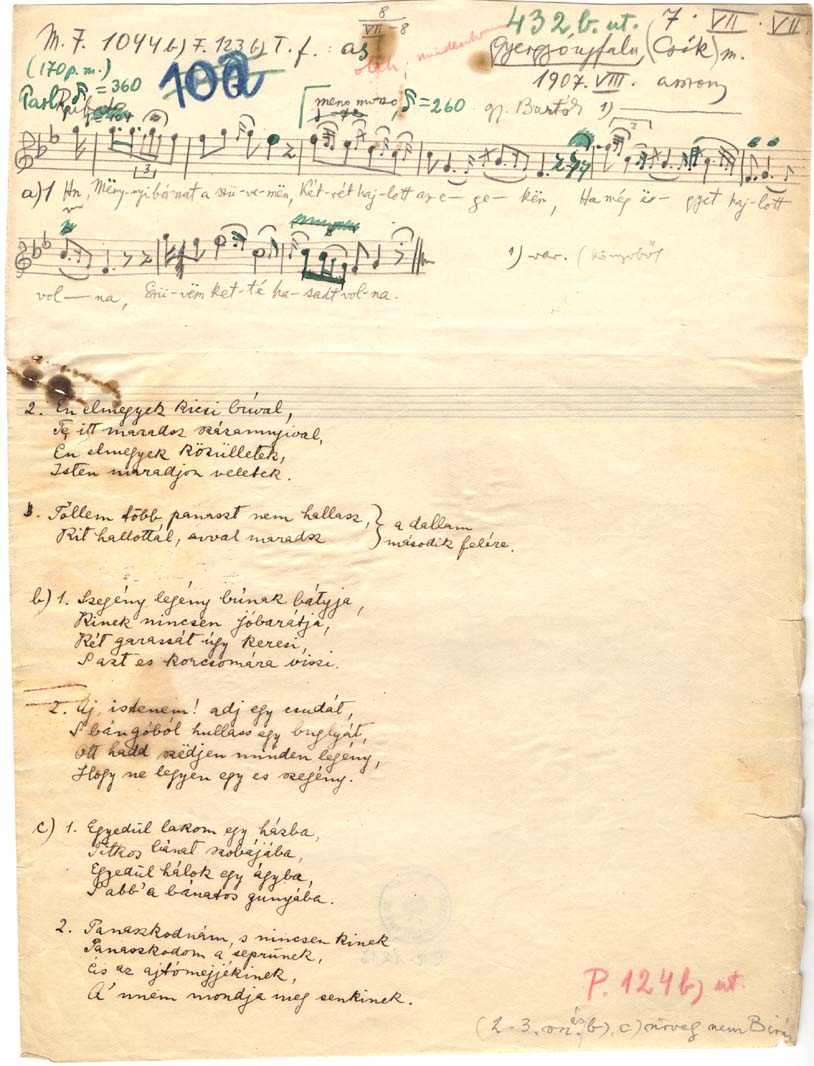 8
VII - 8
M. F. 1044 b) F. 123 b) T. f. : as
432 b. ut.
7. VII. VII.
(170 p. m.)
Gyergyóújfalu, (Csík) m.
Parl. ♪ = 360
10a
1907. VIII. asszony
meno mosso, ♪ = 260
gy. Bartók 1)
a) 1 Hn, Mëny-nyi bánat a szü-ve-mën, Két-rét haj-lott az e - ge - kën, Ha még ës - gyet haj-lott
1) var. (
vol - na, Szü-vëm ket-té ha-sadt vol-na.
2. Én elmegyek kicsi búval,
Te itt maradsz százannyival,
Én elmegyek közülletek,
Isten maradjon veletek.
3. Tőllem több panaszt nem hallasz, } a dallam
Kit hallottál, avval maradsz } második felére.
b) 1. Szegény legény búnak bátyja,
Kinek nincsen jóbarátja,
Két garassát úgy keresi,
S azt es korcsomára viszi.
2. Áj, istenem! adj egy csudát,
S bángóból hullass egy buglyát,
Ott hadd szëdjen minden legény,
Hogy ne legyen egy es szegény.
c) 1. Egyedül lakom egy házba,
Titkos bánat szobájába,
Egyedül hálok egy ágyba,
S abb'a bánatos gunyába.
2. Panaszkodnám, s nincsen kinek
Panaszkodom a seprünek,
És az ajtómejjékinek,
A' nném mondja meg senkinek.
P. 124 b) ut.
(2-3. és b), c) szöveg nem